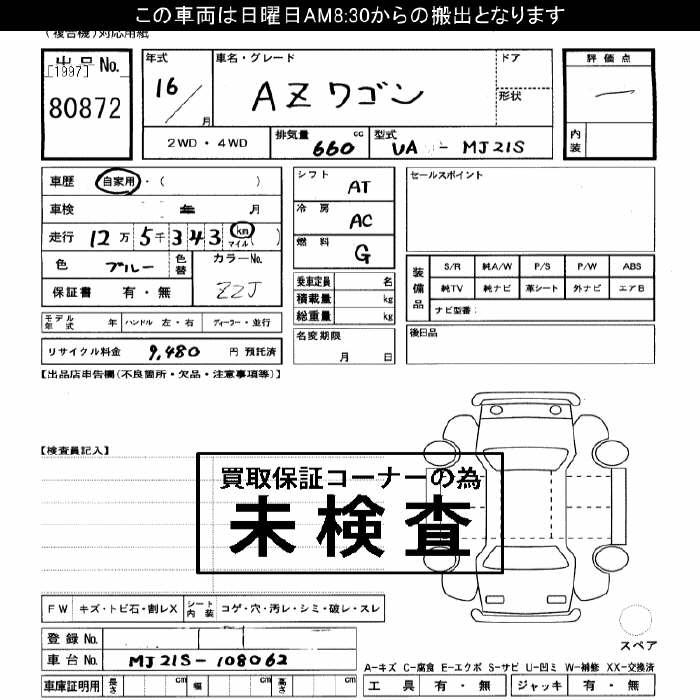 この車両は日曜日AM8:30からの搬出となります
(複合機)対応用紙
出品 No.
[1997]
80872
年式
16 / 月
車名・グレード
AZワゴン
ドア
形状
評価点
―
内装
2WD・4WD
排気量 660 cc
型式 UA - MJ21S
車歴 自家用・( )
車検 年 月
走行 12万 5千 3 4 3 km マイル ( )
色 ブルー
色替
カラーNo.
ZZJ
保証書 有・無
モデル年式 年 ハンドル 左・右 ディーラー・並行
リサイクル料金 9,480 円 預託済
シフト AT
冷房 AC
燃料 G
乗車定員 名
積載量 kg
総重量 kg
名変期限
月 日
セールスポイント
装備品
S/R 純A/W P/S P/W ABS
純TV 純ナビ 革シート 外ナビ エアB
ナビ型番:
後日品
【出品店申告欄(不良箇所・欠品・注意事項等)】
【検査員記入】
買取保証コーナーの為
未検査
FW キズ・トビ石・割レX シート内装 コゲ・穴・汚レ・シミ・破レ・スレ
登録 No.
車台 No. MJ21S-108062
車庫証明用 長さ cm 幅 cm 高さ cm
スペア
A-キズ C-腐食 E-エクボ S-サビ U-凹ミ W-補修 XX-交換済
工具 有・無 ジャッキ 有・無